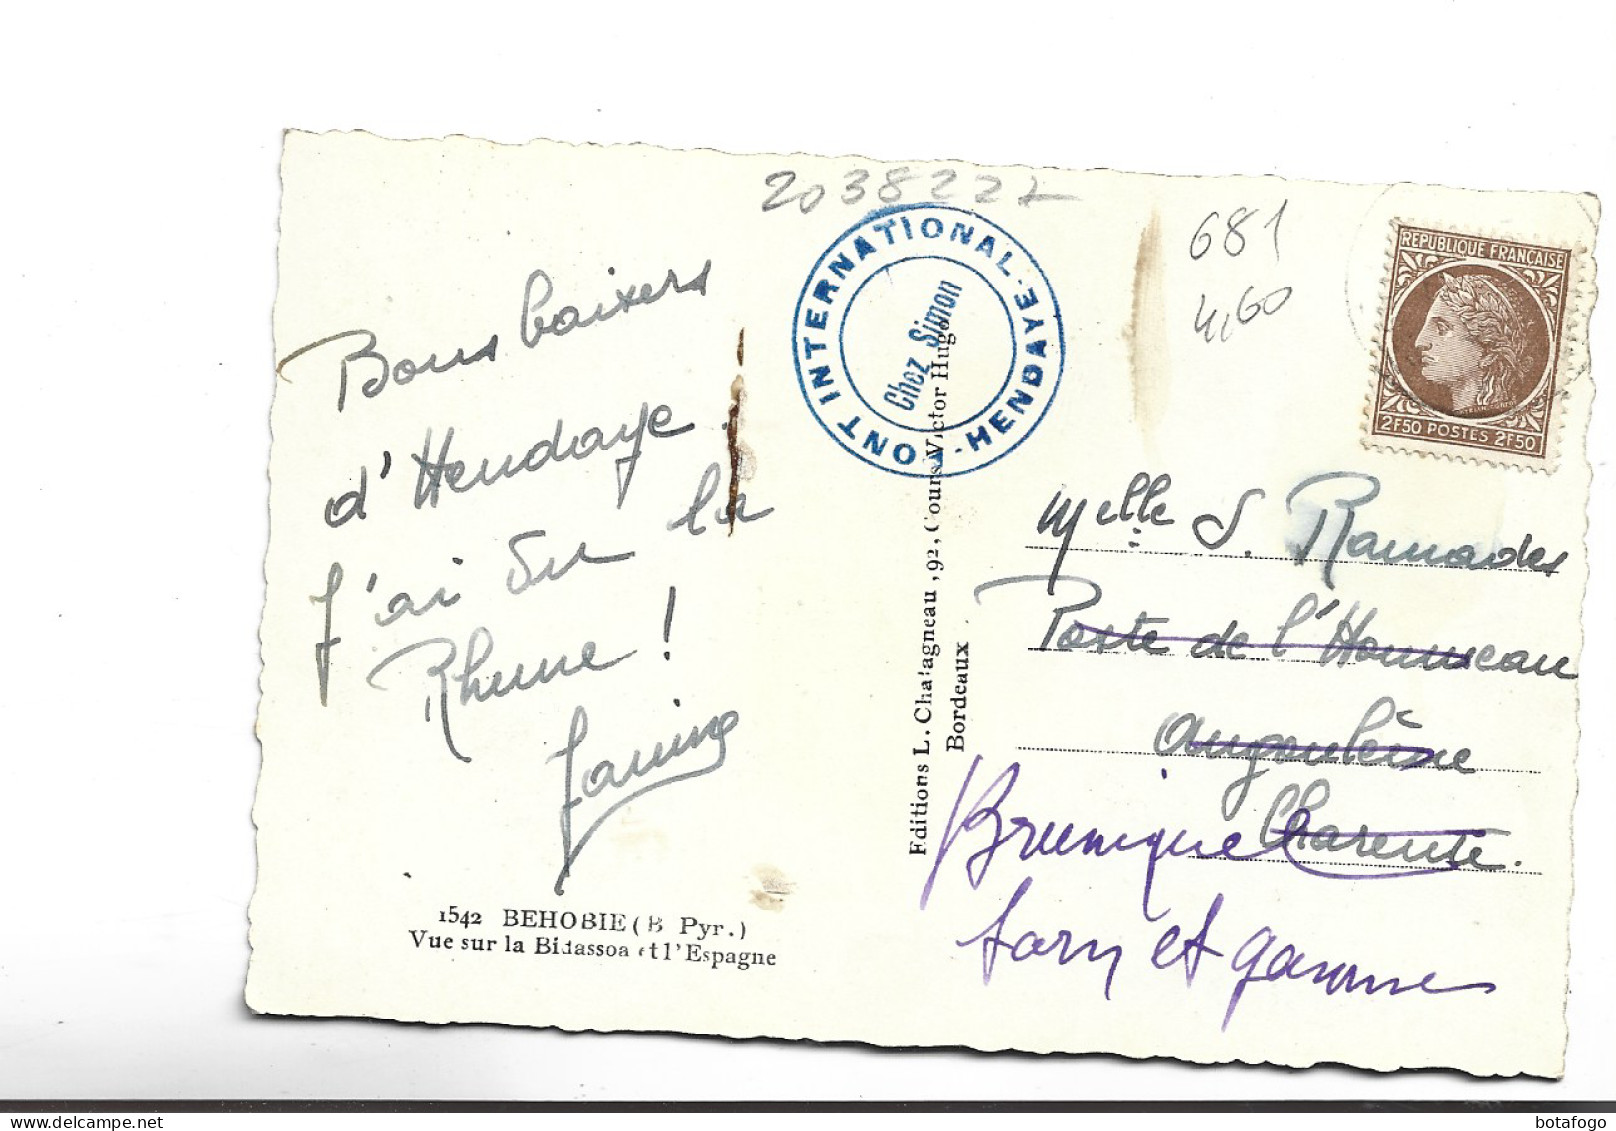 2038227
681
4,60
REPUBLIQUE FRANÇAISE
2F50 POSTES 2F50
PONT INTERNATIONAL - HENDAYE -
Chez Simon
Bons baisers
d'Hendaye.
J'ai vu la
Rhune !
Janine
1542 BEHOBIE (B Pyr.)
Vue sur la Bidassoa et l'Espagne
Editions L. Chatagneau, 92, Cours Victor Hugo
Bordeaux
Melle S. Ramades
Poste de l'Houmeau
Angoulème
Charente.
Bruniquel
tarn et garonne
botafogo